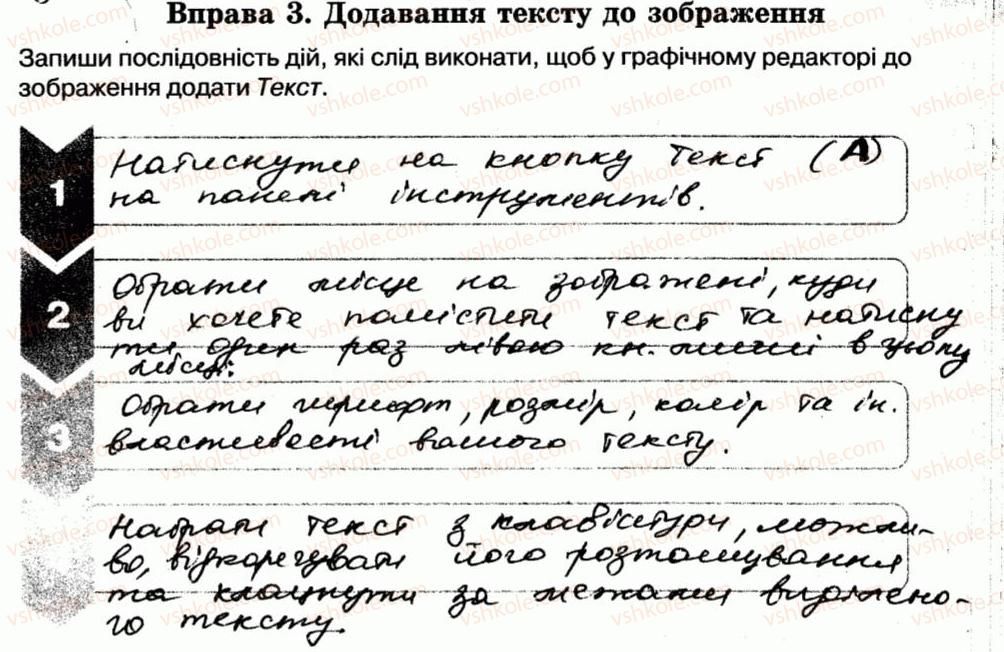 Вправа 3. Додавання тексту до зображення
Запиши послідовність дій, які слід виконати, щоб у графічному редакторі до
зображення додати Текст.
1
Натиснути на кнопку Текст (А)
на панелі інструментів.
2
Обрати місце на зображені, куди
ви хочете помістити текст та натисну
ти один раз лівою кн. миші в цьому
місці.
3
Обрати шрифт, розмір, колір та ін.
властивості вашого тексту.
Набрати текст з клавіатури, можли-
во, відкорегувати його розташування
та клацнути за межами виділено-
го тексту.
vshkole.com